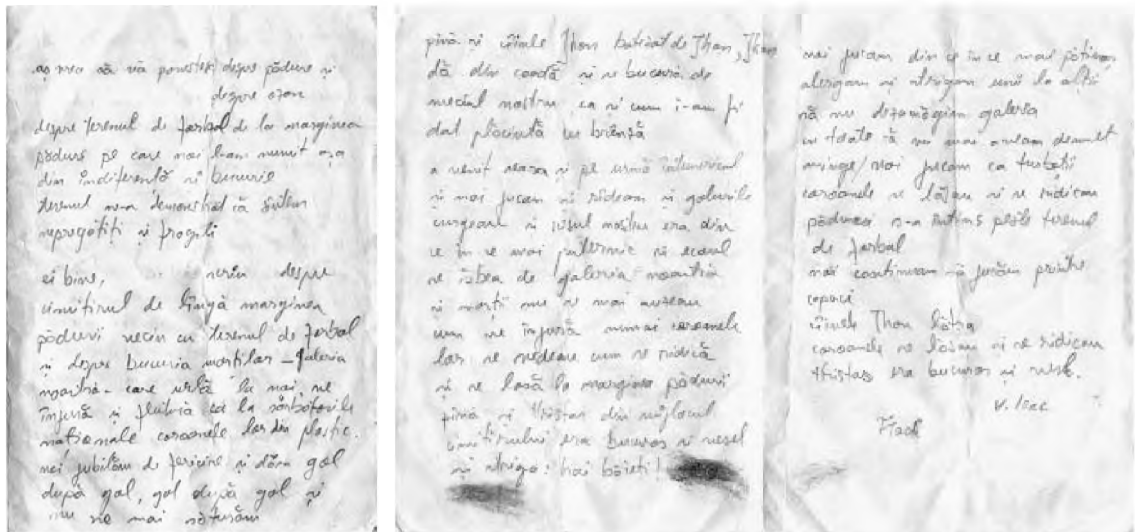 aș vrea să vă povestesc despre pădure și
despre ozon
despre terenul de fotbal de la marginea
pădurii pe care noi l-am numit așa
din indiferență și bucurie
terenul ne-a demonstrat că suntem
nepregătiți și fragili
ei bine, scriu despre
cimitirul de lîngă marginea
pădurii vecin cu terenul de fotbal
și despre bucuria morților – galeria
noastră – care urlă la noi, ne
înjură și flutură ca la sărbătorile
naționale coroanele lor din plastic.
noi jubilăm de fericire și dăm gol
după gol, gol după gol și
nu ne mai săturăm
pînă și cîinele Jhon botezat de Jhon, Jhon
dă din coadă și se bucură de
meciul nostru, ca și cum i-am fi
dat plăcintă cu brînză
a venit seara și pe urmă întunericul
și noi jucam și rîdeam și golurile
curgeau și rîsul nostru era din
ce în ce mai puternic și ecoul
se izbea de galeria noastră
și morții nu se mai auzeau
cum ne înjură numai coroanele
lor se vedeau cum se ridică
și se lasă la marginea pădurii
pînă și Hristos din mijlocul
cimitirului era bucuros și vesel
și striga: hai băieți!
noi jucam din ce în ce mai pătimaș
alergam și strigam unii la alții
să nu dezamăgim galeria
cu toate că nu mai aveam demult
minge/noi jucam ca turbații
coroanele se lăsau și se ridicau
pădurea s-a întins peste terenul
de fotbal
noi continuam să jucăm printre
copaci
cîinele Jhon lătra
coroanele se lăsau și se ridicau
Hristos era bucuros și vesel.
V. Leac